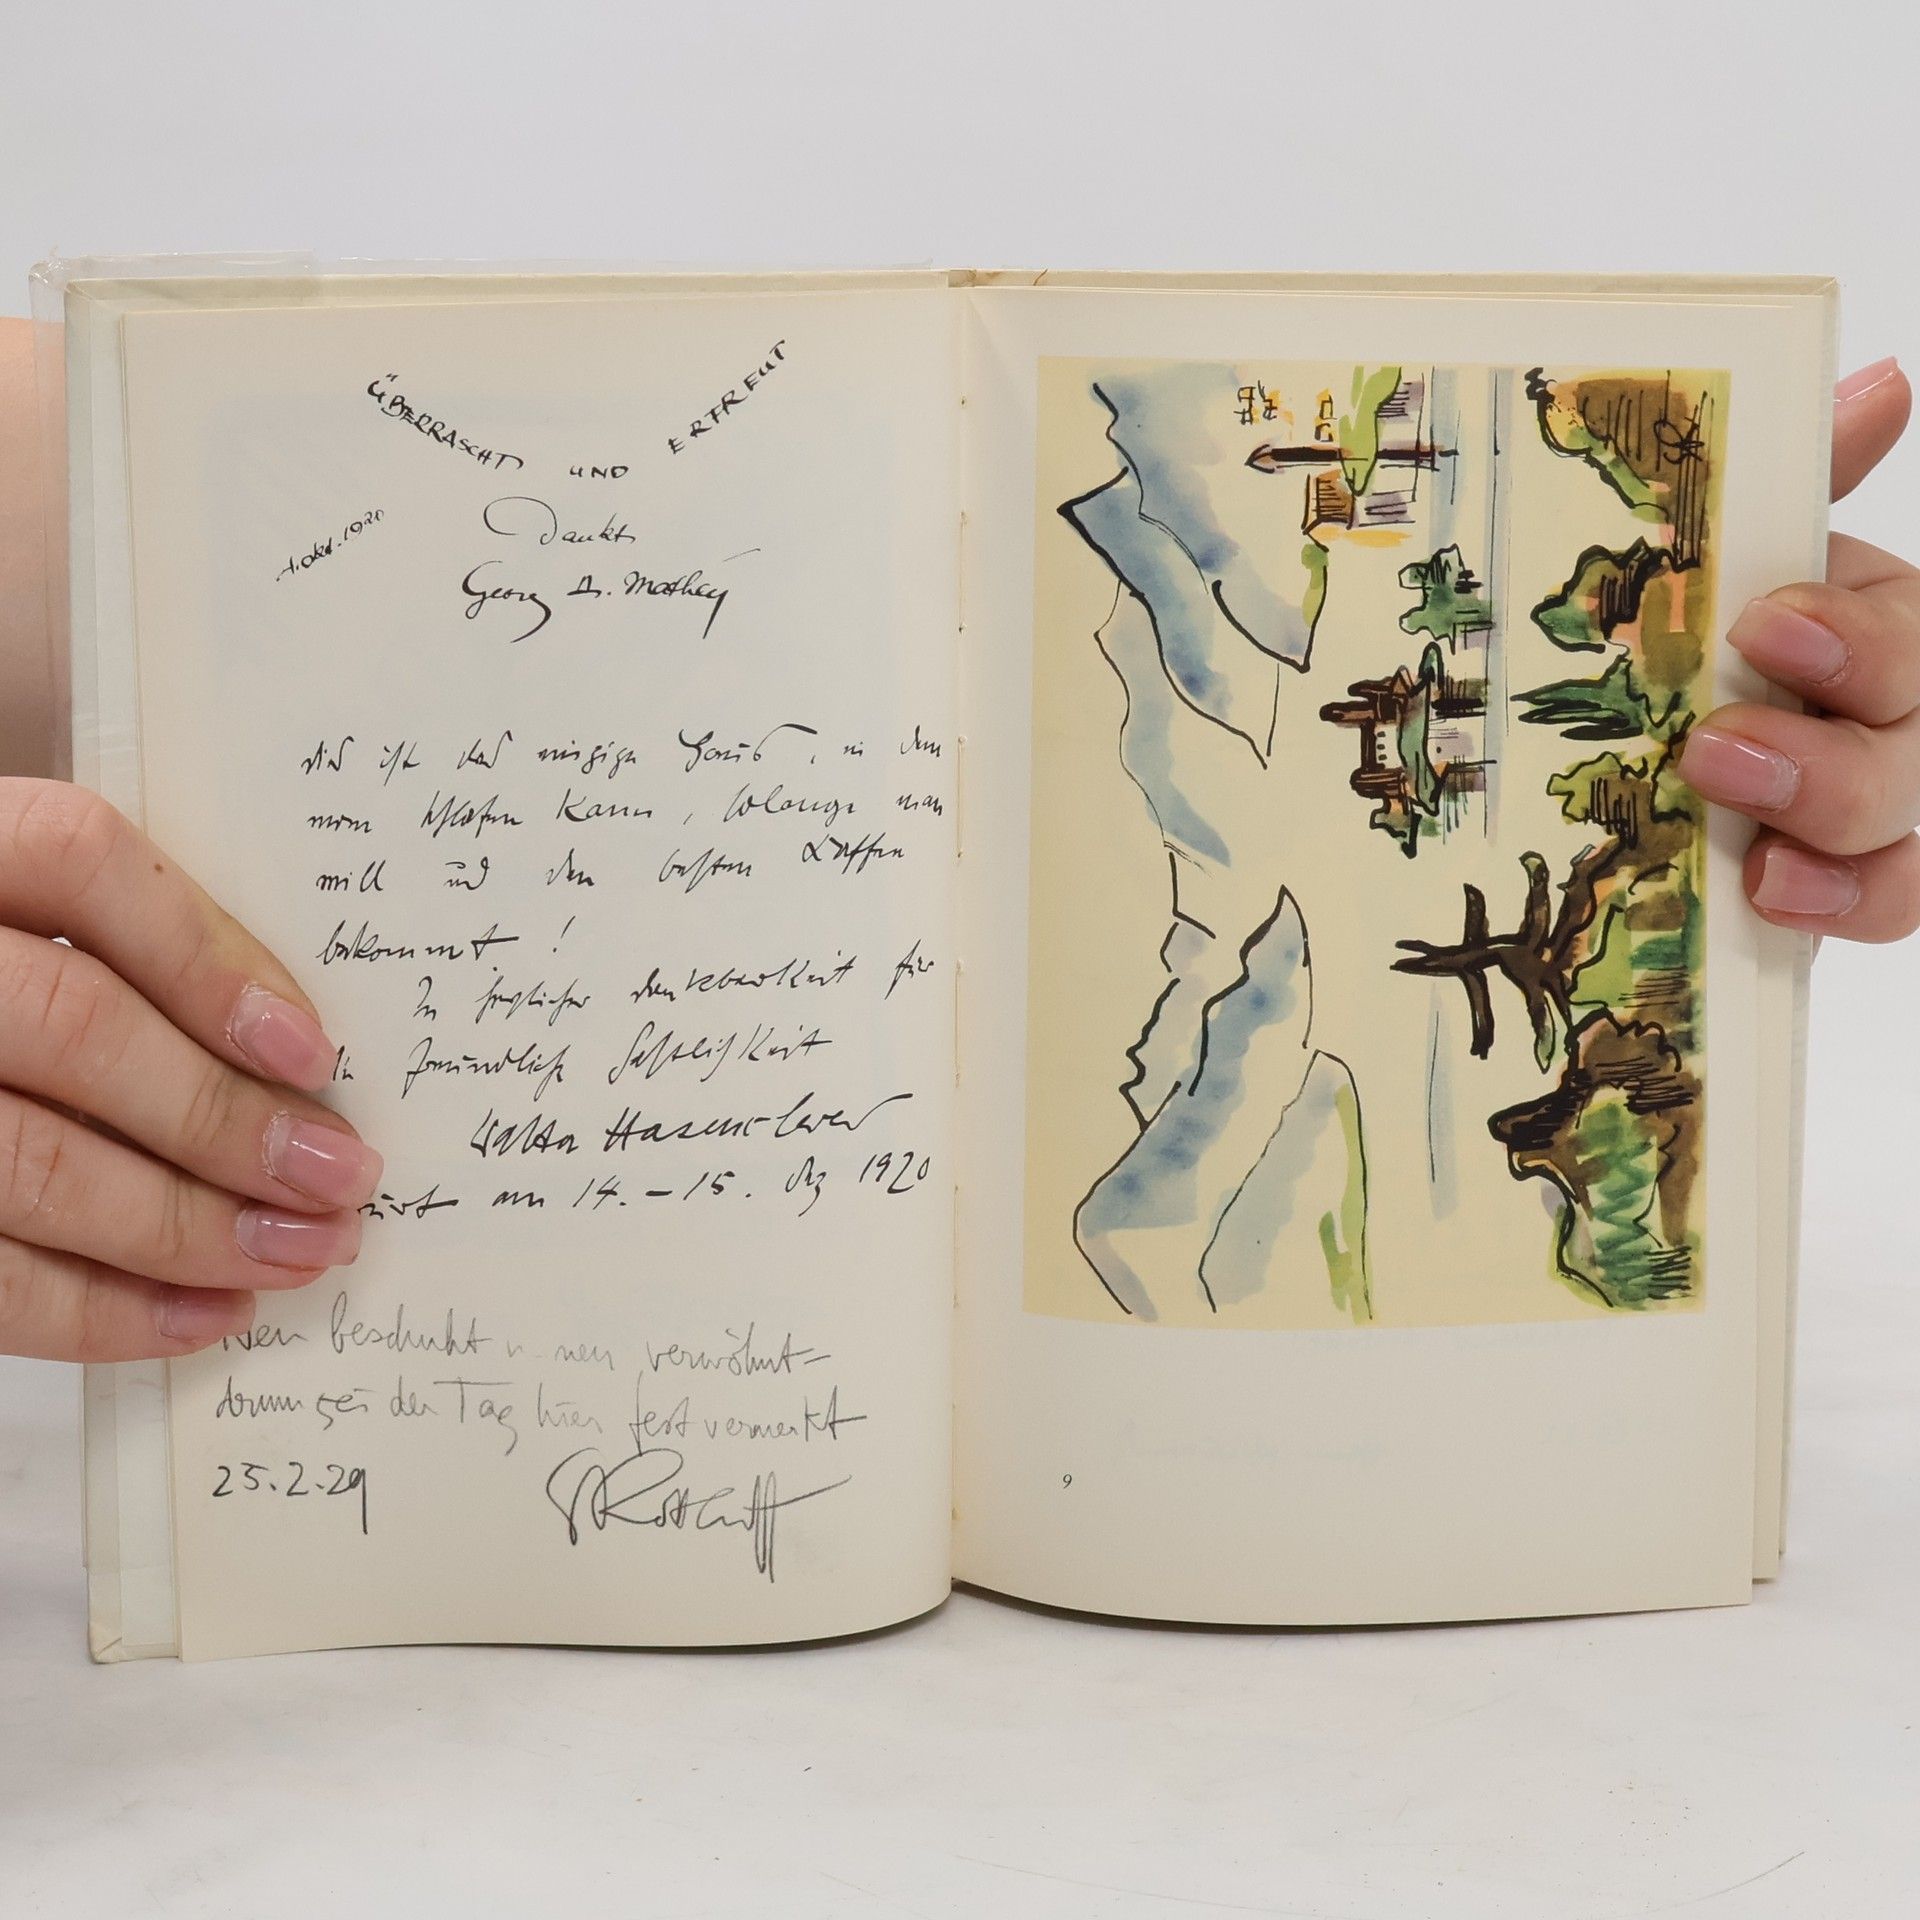 ÜBERRASCHT UND ERFREUT
1. Okt. 1920
Dankt
Georg A. Mathéy
dies ist das einzige Haus, in dem
man schlafen kann, solange man
will und den besten Kaffee
bekommt!
In herzlicher Dankbarkeit für
die freundliche Gastlichkeit
Walter Hasenclever
am 14.-15. Dez 1920
Neu beschuht u neu verwöhnt-
drum sei der Tag hier fest vermerkt
25.2.29
9